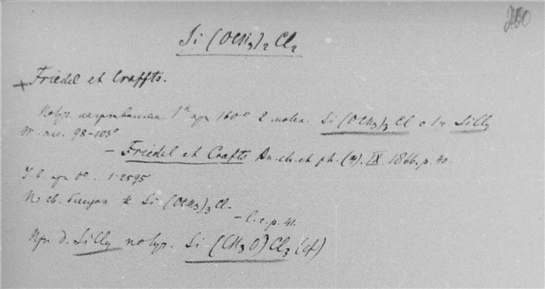 200
Si (OCH3)2 Cl2
+ Friedel et Craffts.
Получ. нагреваніем 1ч при 160° 2 молек. Si (OCH3)3 Cl с 1м. SiCl4
Т. кип. 98-103°
— Friedel et Crafts An. ch. et ph. (4). IX. 1866. p. 40.
при 0° .. 1.2595
По св. близок к Si (OCH3)3 Cl.
— l. c. p. 41.
При д. SiCl4 получ. Si (CH3O) Cl3 (cf)